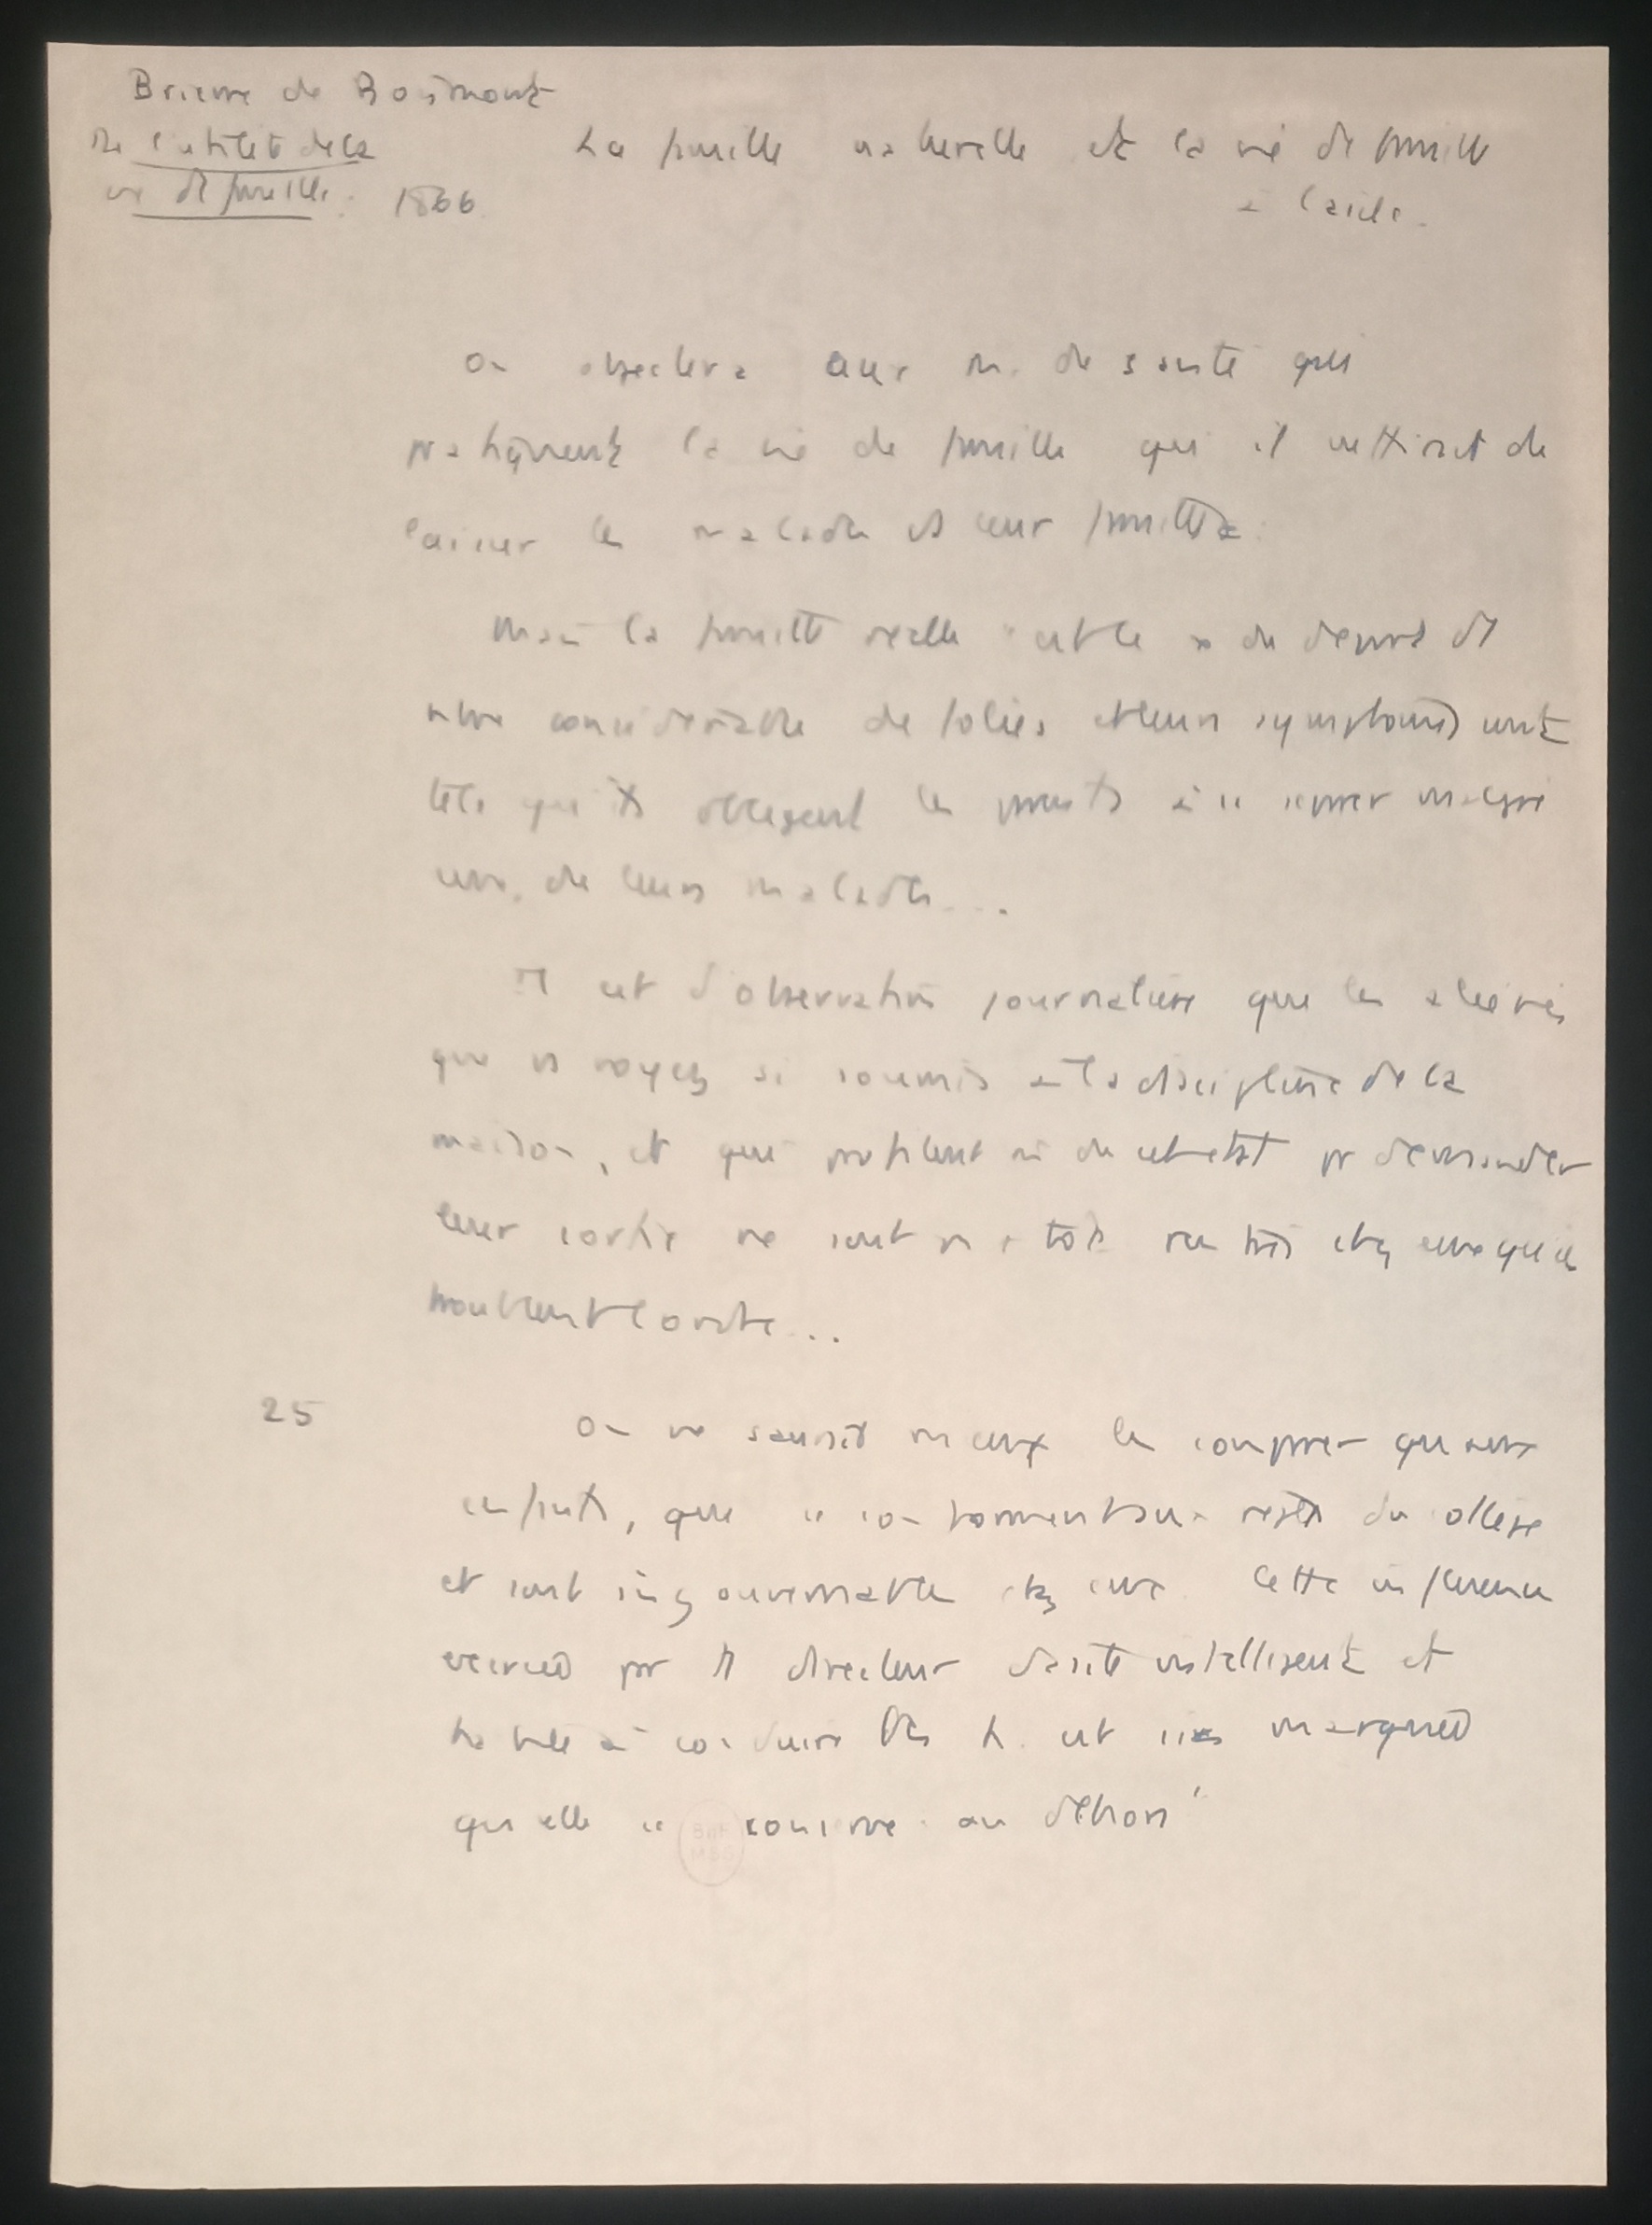 Brierre de Boismont
De l'utilité de la
vie de famille. 1866
La famille naturelle et la vie de famille
à l'asile.
On objectera aux m. de santé qui
pratiquent la vie de famille qu'il suffirait de
laisser les malades ds leur famille.
Mais la famille réelle
considérable de folies et leurs symptômes sont
tels qu'ils obligent les parents à se séparer malgré
eux, de leurs malades...
Il est d'observation journalière que les aliénés
que vs voyez si soumis à la discipline de la
maison, et qui profitent de cet état pr demander
leur sortie ne sont pas + tôt rentrés chez eux qu'ils
troublent l'ordre...
25
On ne saurait mieux les comparer qu'aux
enfants, que
et sont ingouvernables chez eux. Cette influence
exercée par le directeur intelligent et
habile à conduire les h. est si marquée
qu'elle se conserve au dehors"
BnF
MSS